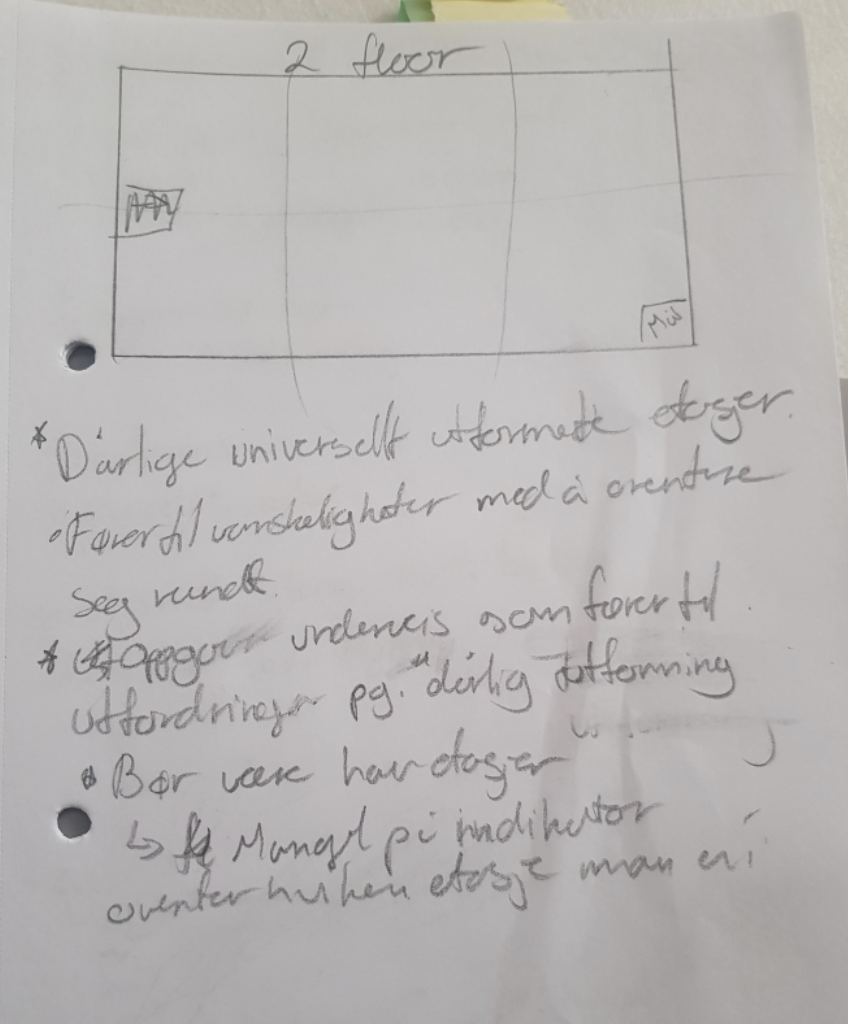 2 floor
Mål
* Dårlige universellt utformede etasjer.
• Fører til vanskeligheter med å orentere
seg rundt.
* Oppgaver underveis som fører til
utfordringer pg. dårlig utforming
• Bør være hav etasjer
↳ Mangel på indikator
ovenfor hvilken etasje man er i